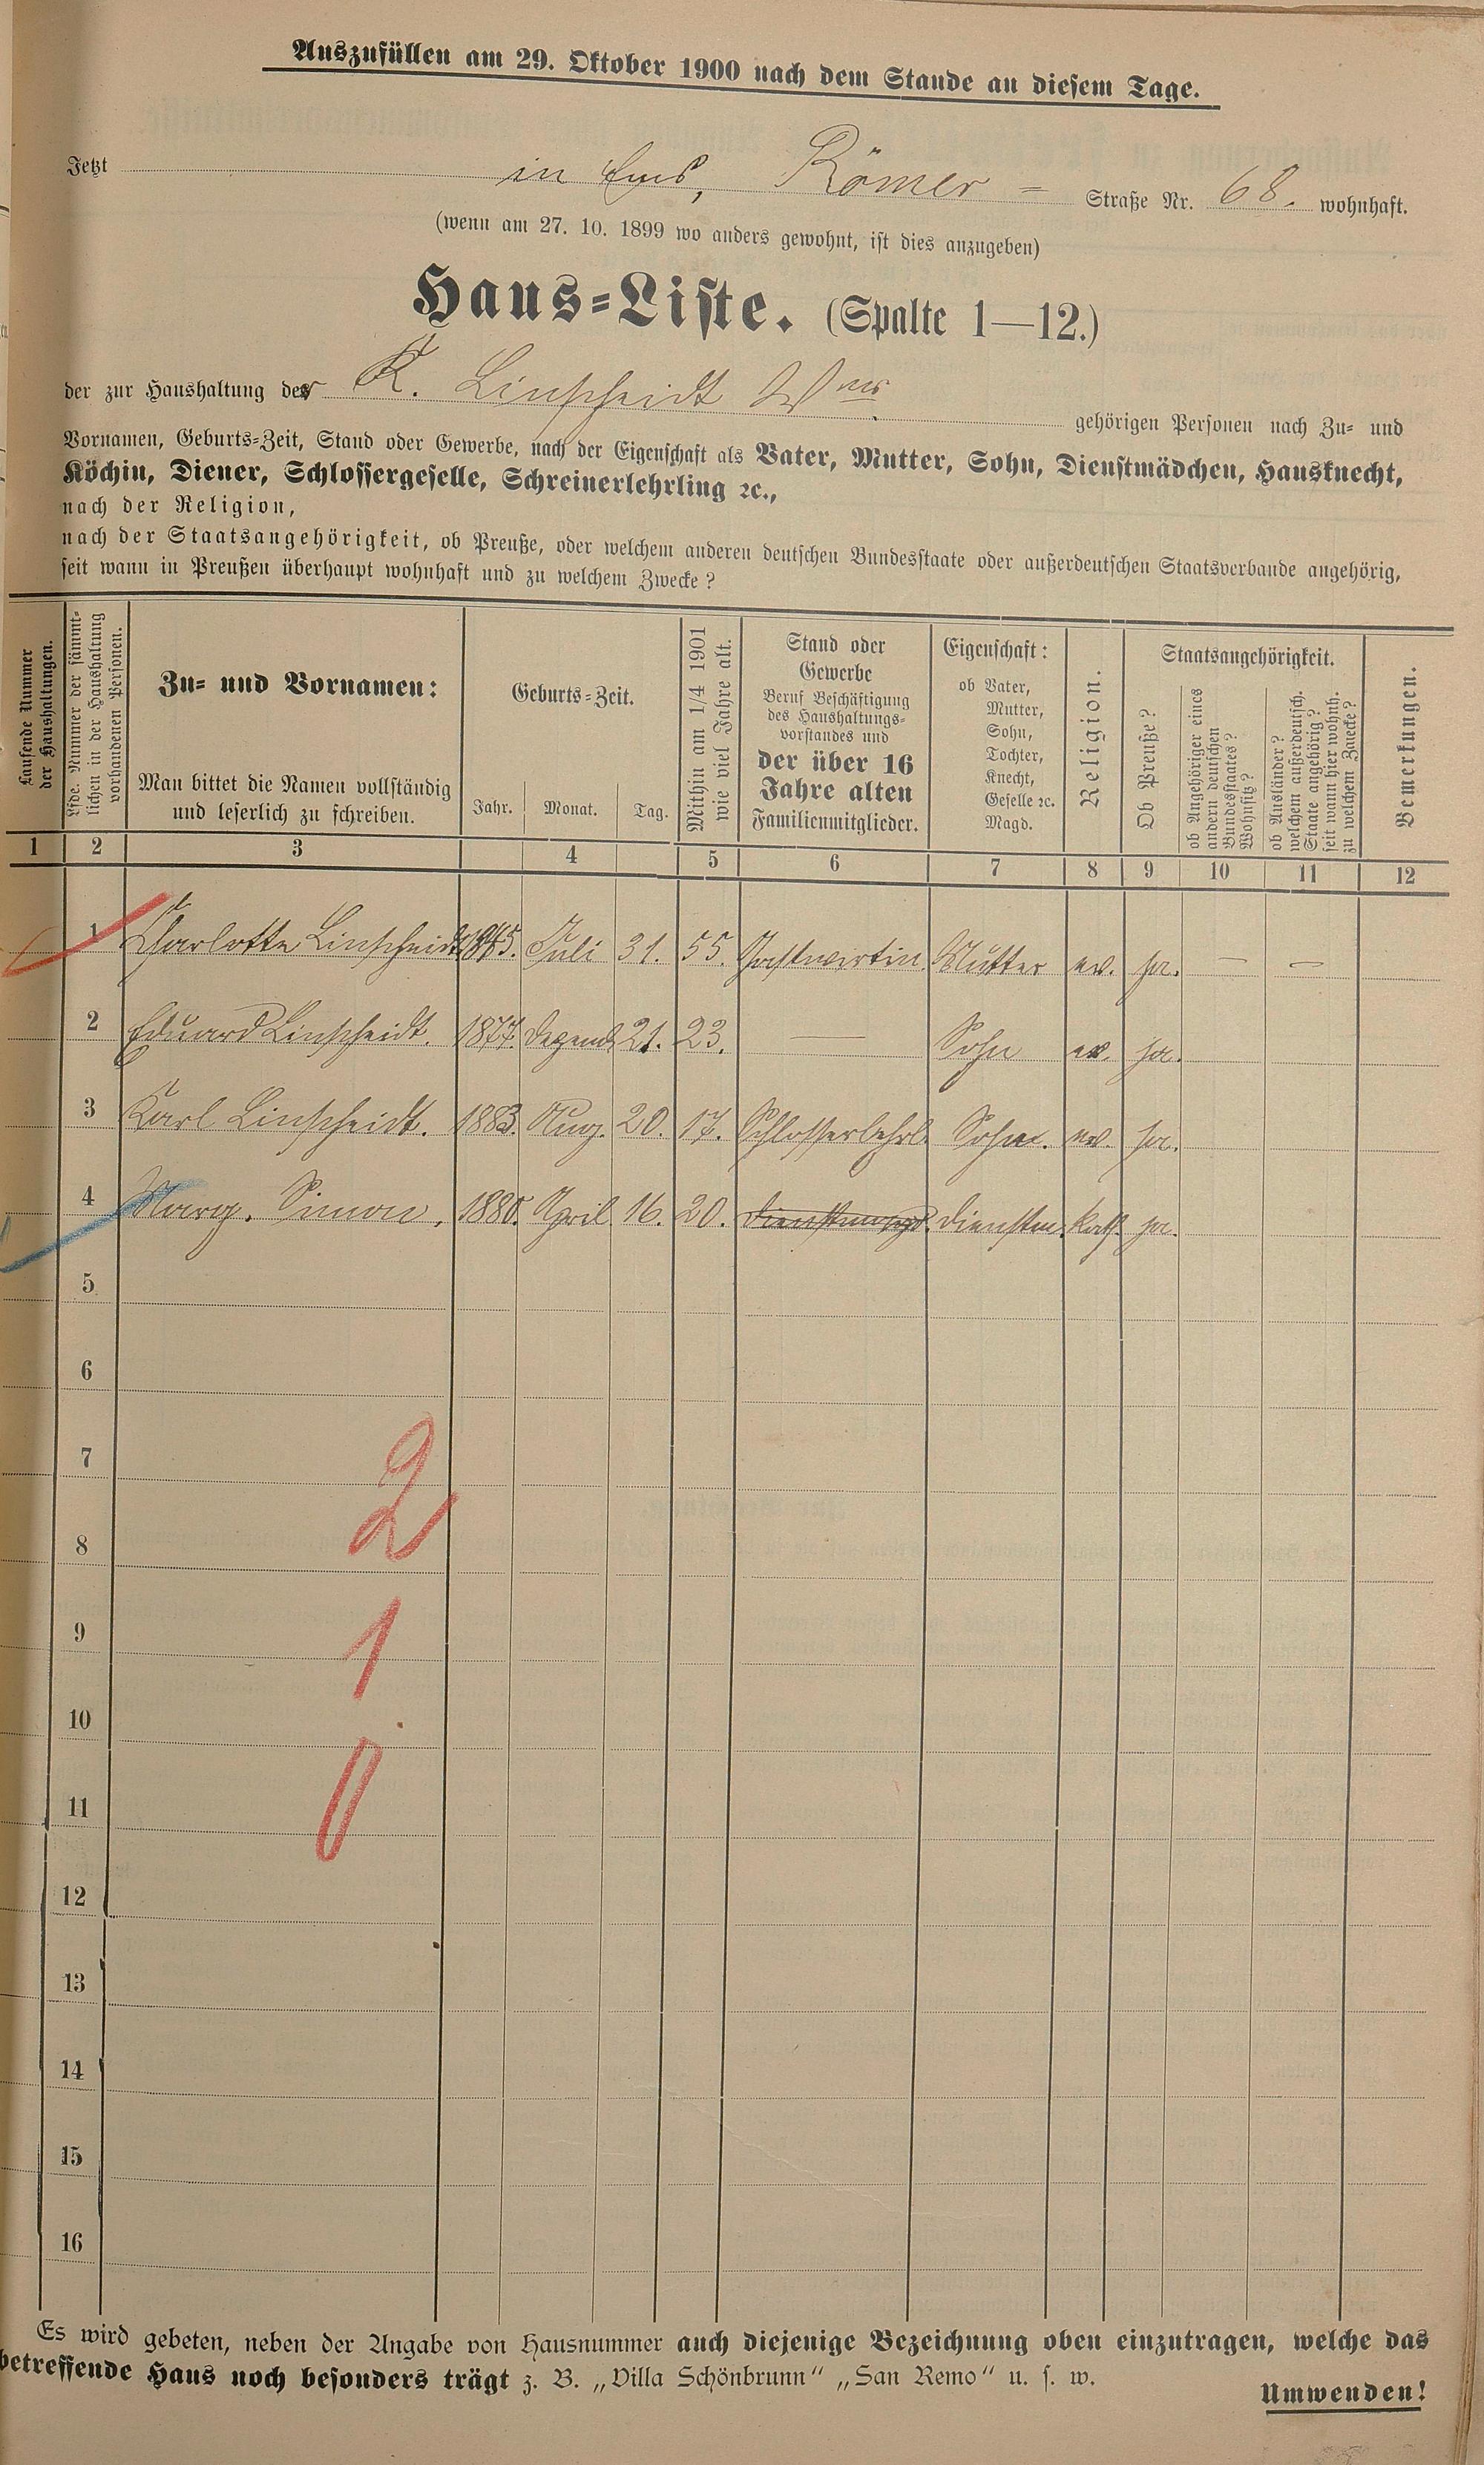 Auszufüllen am 29. Oktober 1900 nach dem Stande an diesem Tage.
Jetzt in Ems, Römer = Straße Nr. 68. wohnhaft.
(wenn am 27. 10. 1899 wo anders gewohnt, ist dies anzugeben)
Haus=Liste. (Spalte 1—12.)
der zur Haushaltung der K. Linscheidt Wwe gehörigen Personen nach Zu= und
Vornamen, Geburts=Zeit, Stand oder Gewerbe, nach der Eigenschaft als Vater, Mutter, Sohn, Dienstmädchen, Hausknecht,
Köchin, Diener, Schlossergeselle, Schreinerlehrling ꝛc.,
nach der Religion,
nach der Staatsangehörigkeit, ob Preuße, oder welchem anderen deutschen Bundesstaate oder außerdeutschen Staatsverbande angehörig,
seit wann in Preußen überhaupt wohnhaft und zu welchem Zwecke?
Laufende Nummer
der Haushaltungen.
Lfde. Nummer der sämmt-
lichen in der Haushaltung
vorhandenen Personen.
Zu= und Vornamen:
Man bittet die Namen vollständig
und leserlich zu schreiben.
Geburts=Zeit.
Jahr. Monat. Tag.
Mithin am 1/4 1901
wie viel Jahre alt.
Stand oder
Gewerbe
Beruf Beschäftigung
des Haushaltungs=
vorstandes und
der über 16
Jahre alten
Familienmitglieder.
Eigenschaft:
ob Vater,
Mutter,
Sohn,
Tochter,
Knecht,
Geselle ꝛc.
Magd.
Religion.
Staatsangehörigkeit.
Ob Preuße?
ob Angehöriger eines
andern deutschen
Bundesstaates?
Wohnsitz?
ob Ausländer?
welchem außerdeutsch.
Staate angehörig?
seit wann hier wohnh.
zu welchem Zwecke?
Bemerkungen.
1 2 3 4 5 6 7 8 9 10 11 12
1 Charlotte Linscheidt 1845. Juli 31. 55. Gastwirtin. Mutter ev. ja. — —
2 Eduard Linscheidt. 1877. Dezemb. 21. 23. — Sohn ev. ja.
3 Karl Linscheidt. 1883. Aug. 20. 17. Schlosserlehrl. Sohn. ev. ja.
4 Marg. Simon. 1880. April 16. 20. Dienstmagd. Dienstm. kath. ja.
5
6
7
2
8
9
1
10
11
0
12
13
14
15
16
Es wird gebeten, neben der Angabe von Hausnummer auch diejenige Bezeichnung oben einzutragen, welche das
betreffende Haus noch besonders trägt z. B. „Villa Schönbrunn“ „San Remo“ u. s. w.
Umwenden!